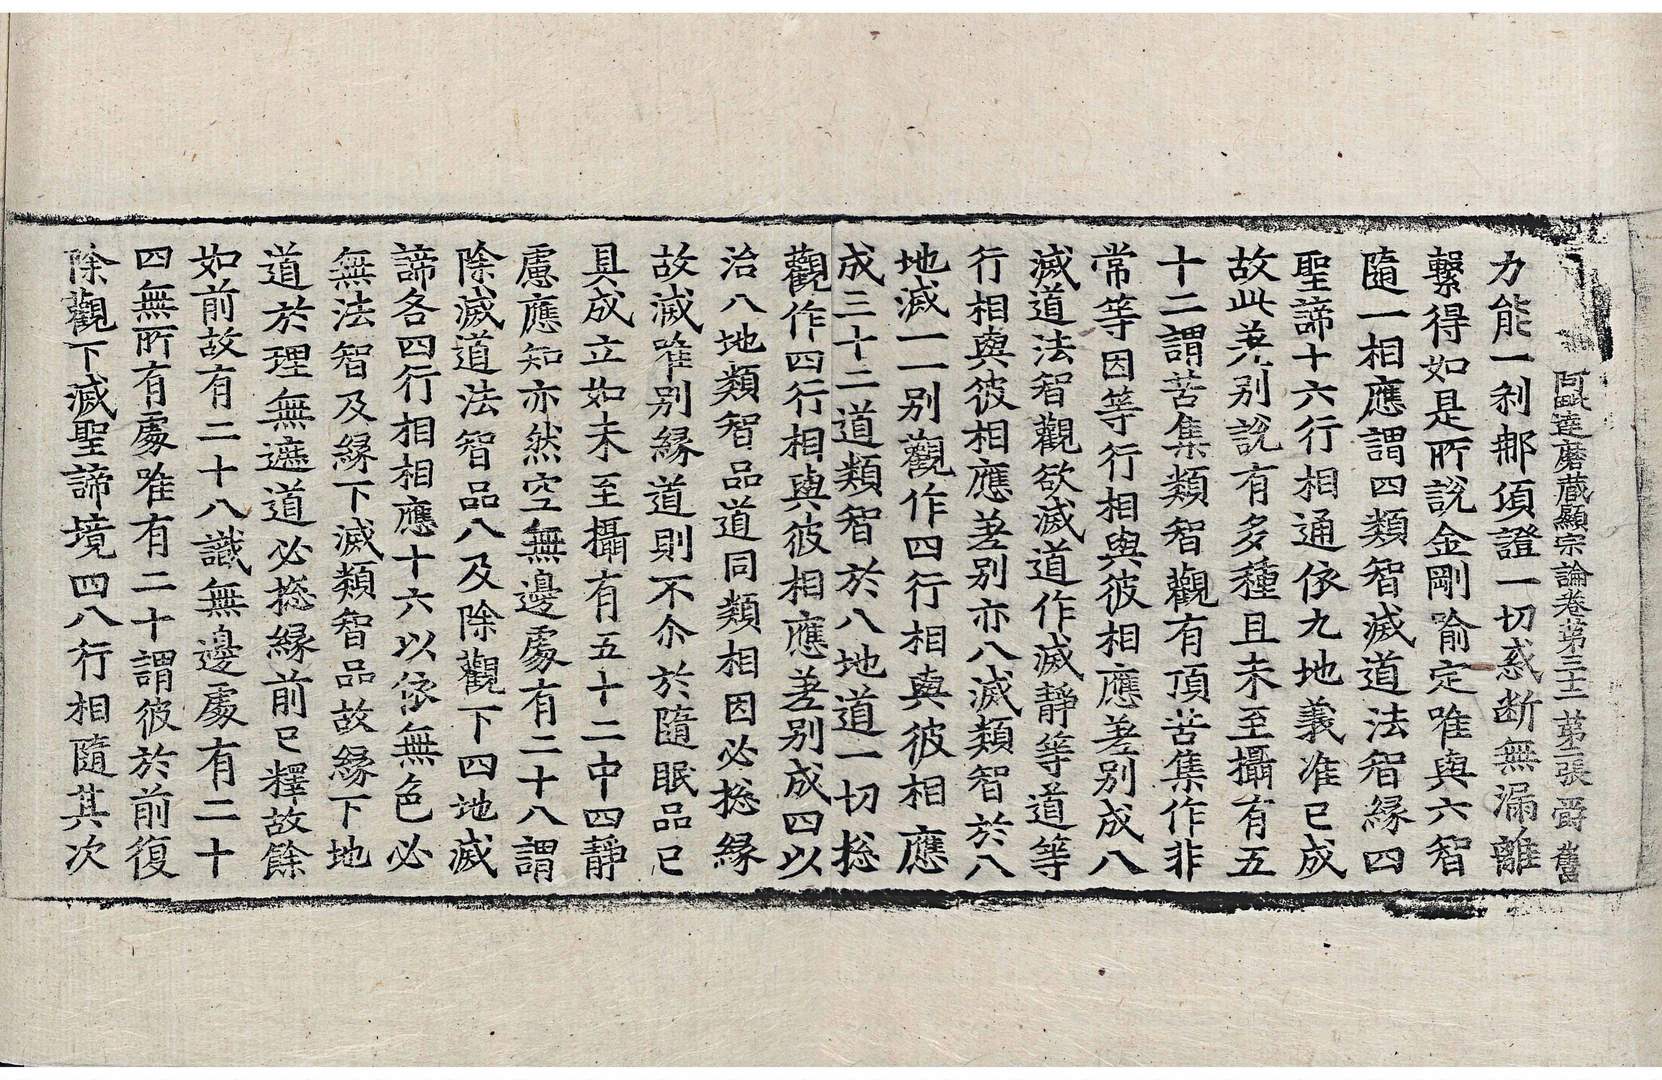 阿毗達磨藏顯宗論卷第三十二 第三張 爵 舊
力能一刹那頃證一切惑断無漏離
繫得如是所說金剛喻定唯與六智
隨一相應謂四類智滅道法智緣四
聖諦十六行相通依九地義准已成
故此差別說有多種且未至攝有五
十二謂苦集類智觀有頂苦集作非
常等因等行相與彼相應差別成八
滅道法智觀欲滅道作滅靜等道等
行相與彼相應差別亦八滅類智於八
地滅一一別觀作四行相與彼相應
成三十二道類智於八地道一切捴
觀作四行相與彼相應差别成四以
治八地類智品道同類相因必捴緣
故滅唯别緣道則不尒於隨眠品已
具成立如未至攝有五十二中四靜
慮應知亦然空無邊處有二十八謂
除滅道法智品八及除觀下四地滅
諦各四行相相應十六以依無色必
無法智及緣下滅類智品故緣下地
道於理無遮道必捴緣前已釋故餘
如前故有二十八識無邊處有二十
四無所有處唯有二十謂彼於前復
除觀下滅聖諦境四八行相隨其次